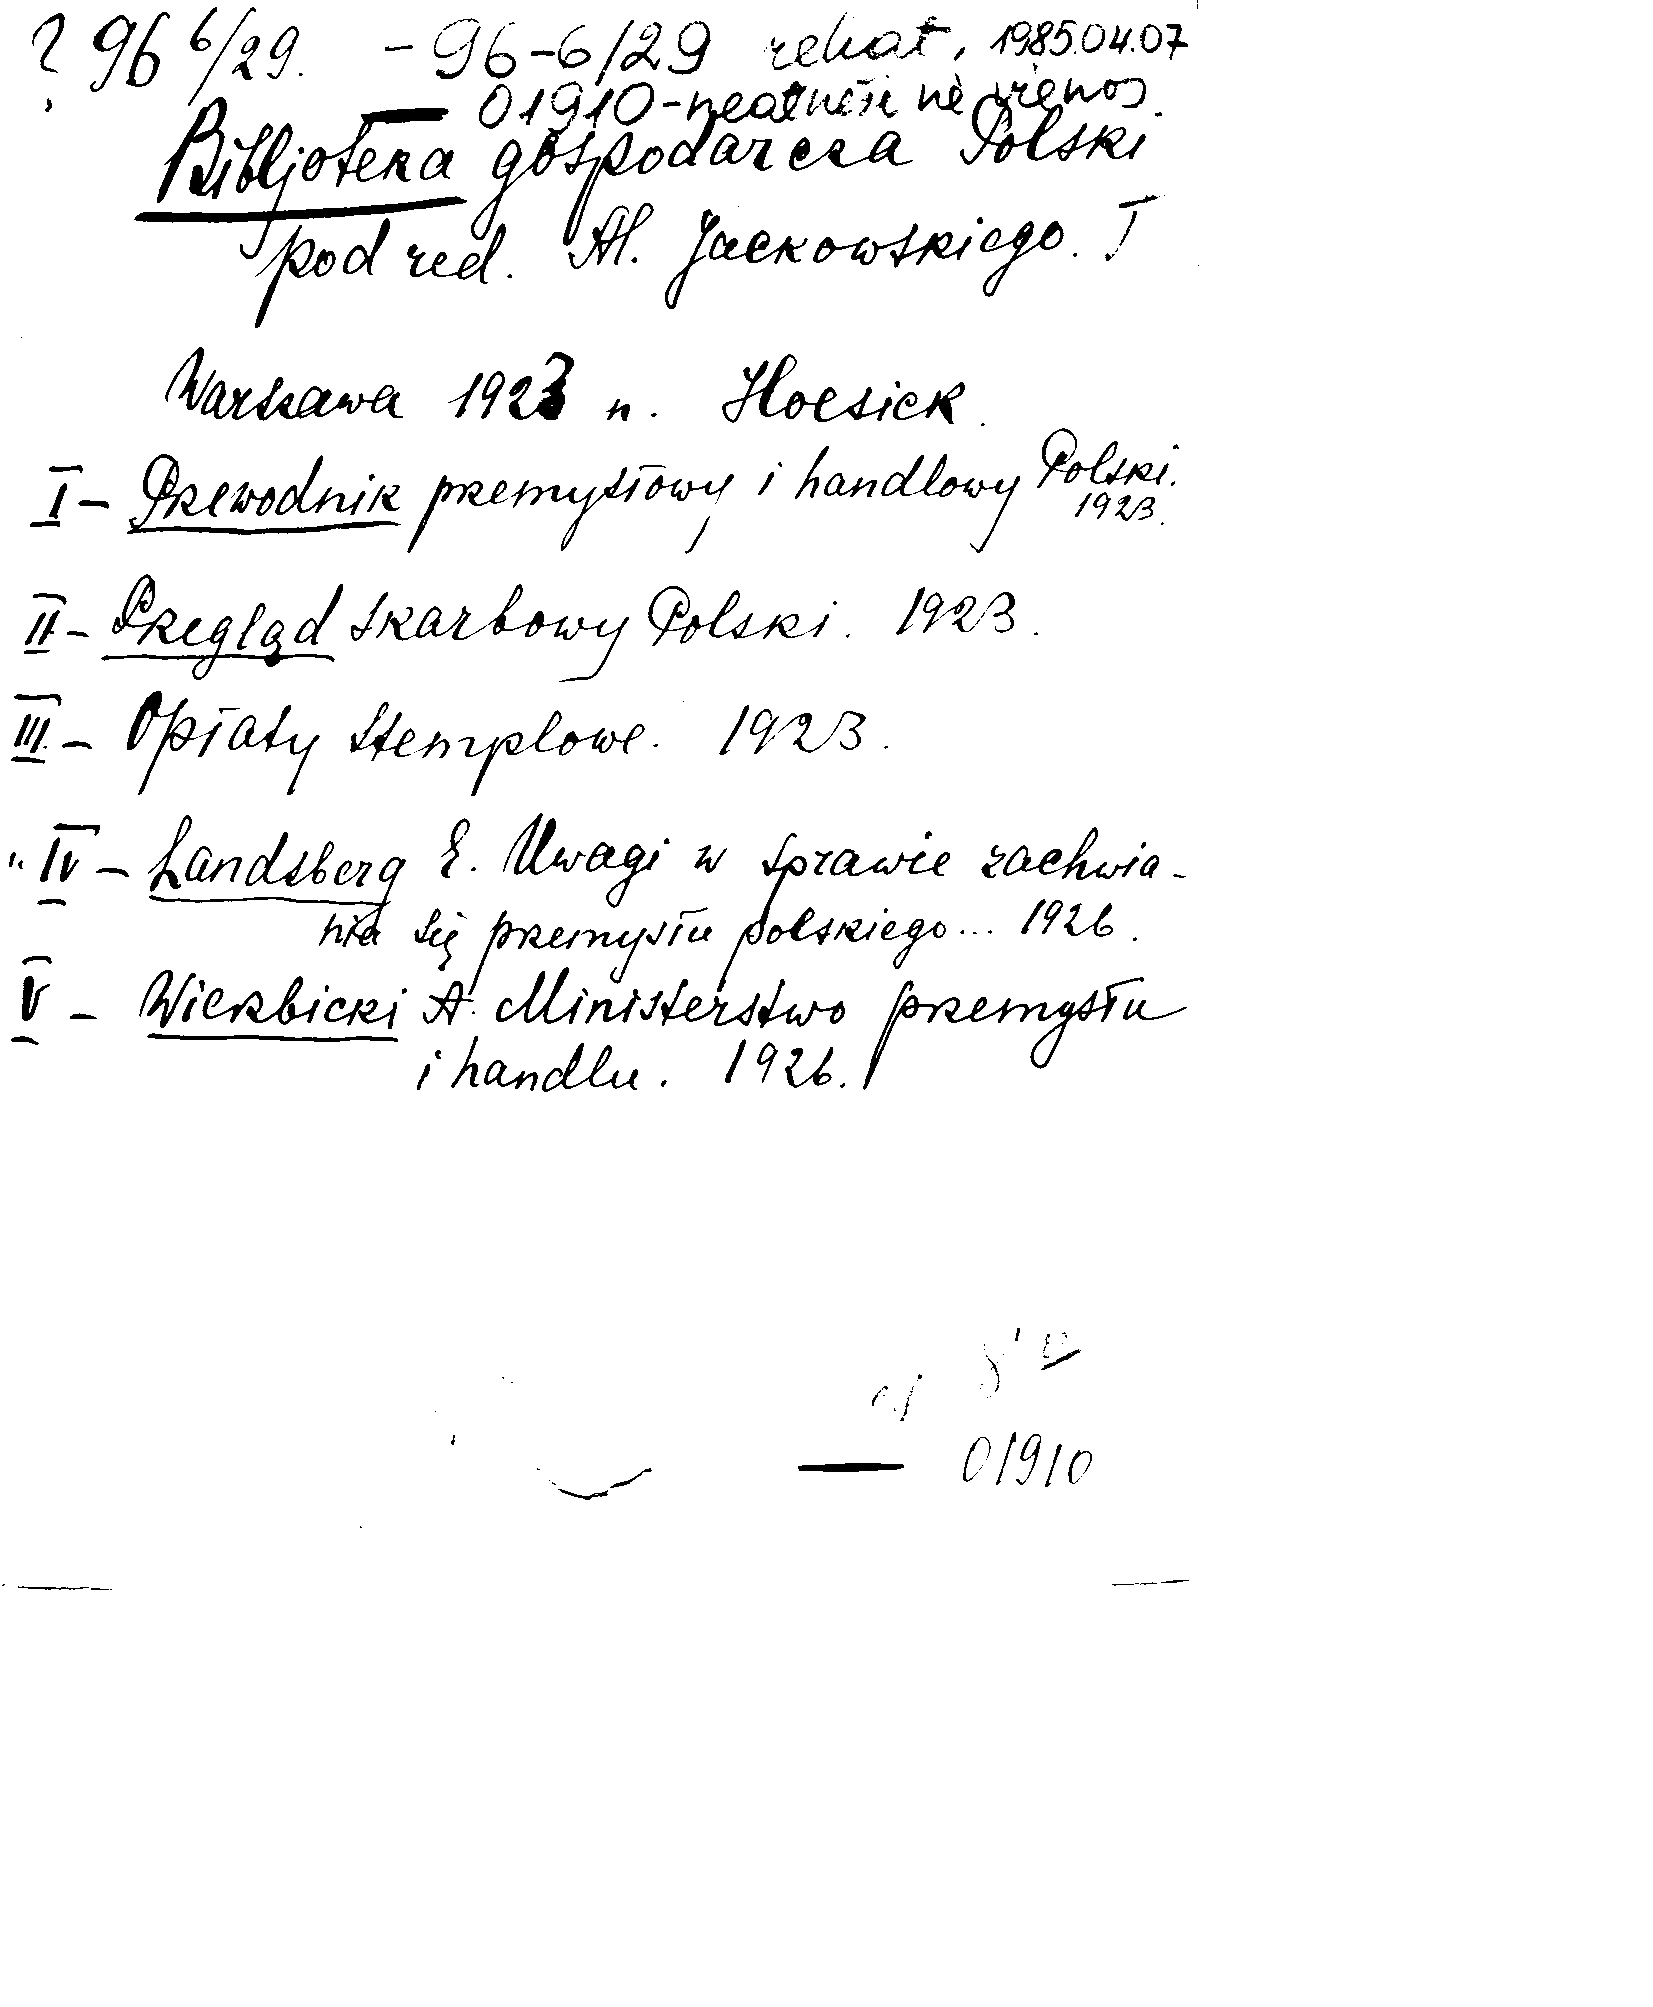 ? 96 6/29. - 96-6/29 1985.04.07
01910 - neatnešė nė vienos
Bibljoteka gospodarcza Polski
pod red. Al. Jackowskiego. I
Warszawa 1923 n. Hoesick.
I - Przewodnik przemysłowy i handlowy Polski.
1923.
II - Przegląd skarbowy Polski. 1923.
III. - Opłaty stemplowe. 1923.
" IV - Landsberg E. Uwagi w sprawie zachwia-
nia się przemysłu polskiego... 1926.
V - Wierzbicki A. Ministerstwo przemysłu
i handlu. 1926.
— 01910